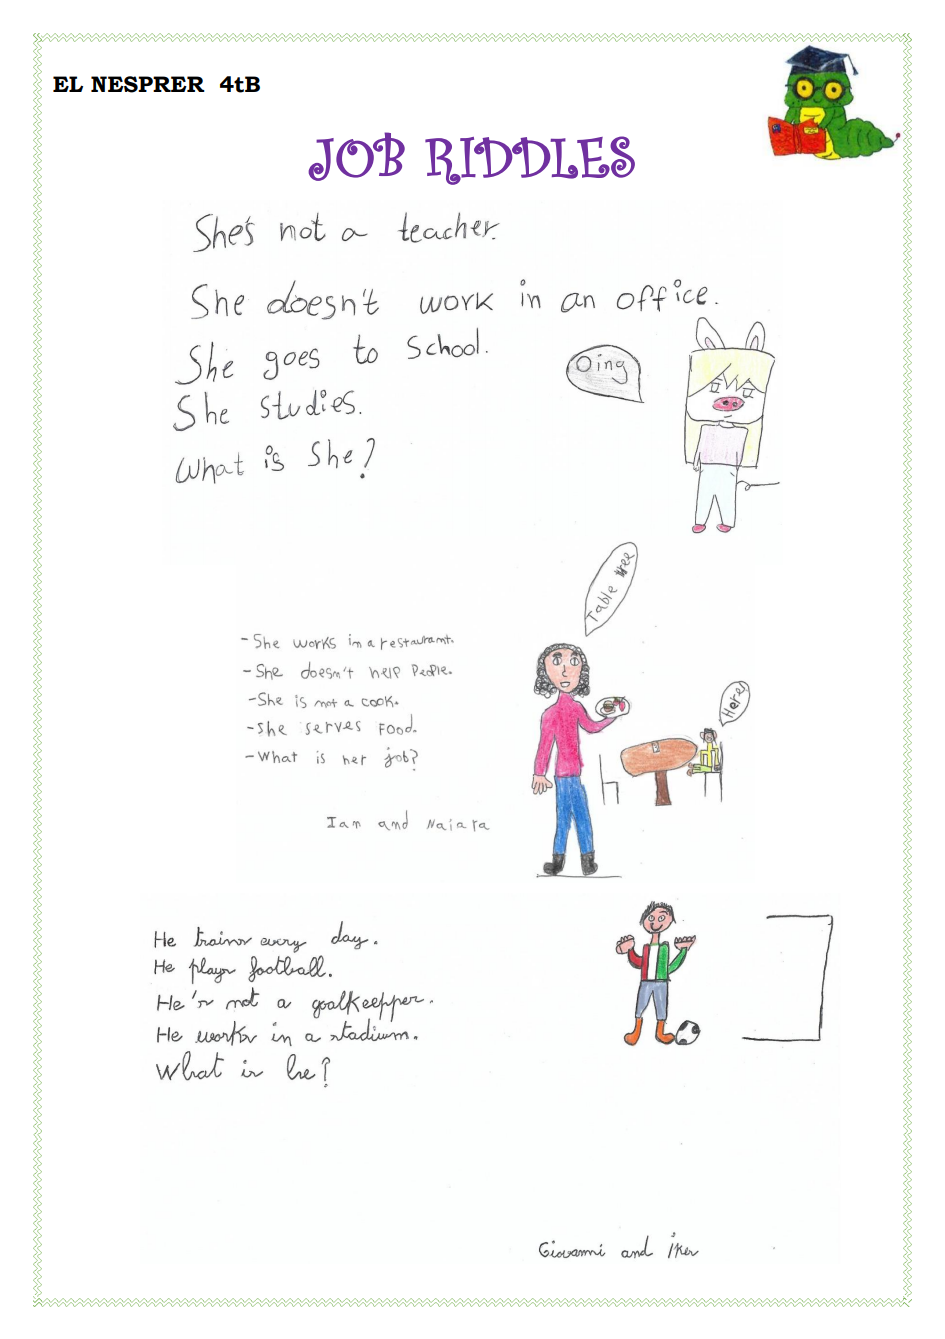 EL NESPRER 4tB
JOB RIDDLES
She's not a teacher.
She doesn't work in an office.
She goes to school.
She studies.
What is she?
Oing
Table tree
- She works in a restaurant.
- She doesn't help People.
- She is not a cook.
- She serves Food.
- What is her job?
Here
Ian and Naiara
He trains every day.
He plays football.
He's not a goalkeepper.
He works in a stadium.
What is he?
Giovanni and iker